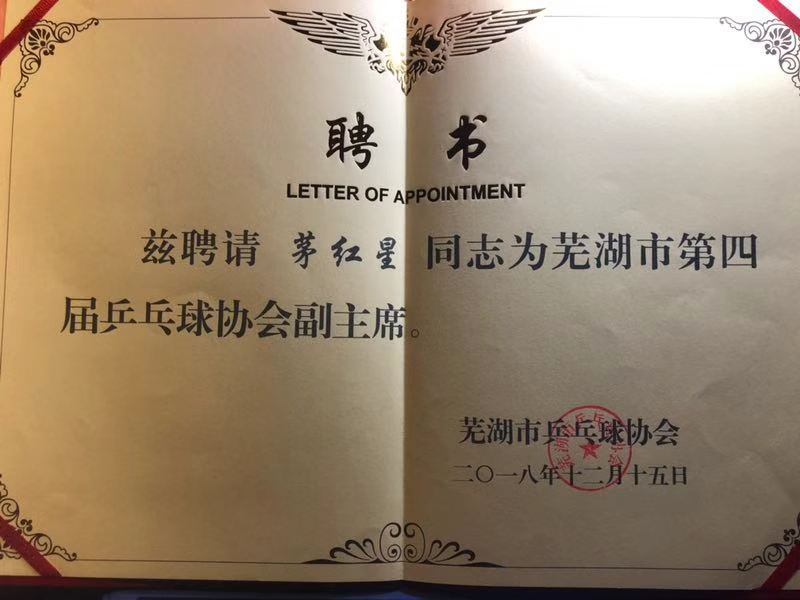 聘书
LETTER OF APPOINTMENT
兹聘请 茅红星 同志为芜湖市第四
届乒乓球协会副主席。
芜湖市乒乓球协会
二〇一八年十二月十五日
芜湖市乒乓球协会